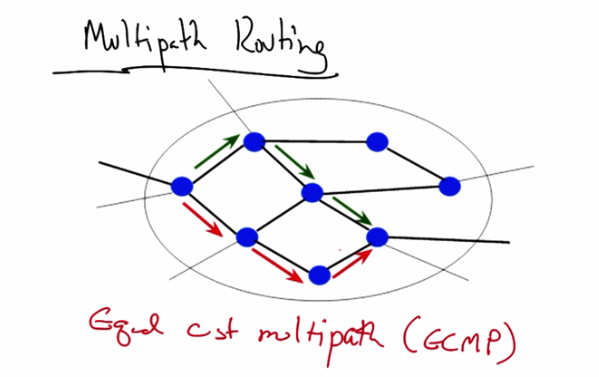 Multipath Routing
Equal cost multipath (ECMP)